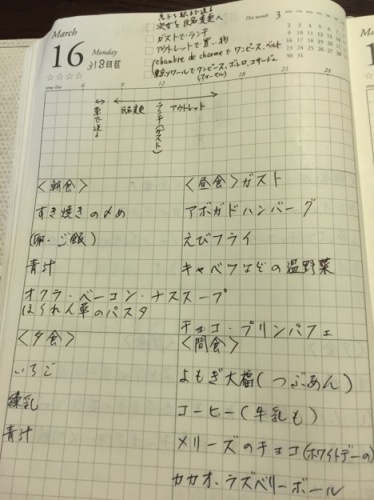 息子を駅まで送る
次女と氏名変更へ
ガストでランチ
アウトレットで買い物
(chambre de charmeでワンピース、ベルト
東京ソワールでワンピース、ボレロ、コサージュ
March
16
Monday
318日目
This month
3
6
9
12
15
18
21
24
駅まで送る
氏名変更
ランチ(ガスト)
アウトレット
<朝食>
すき焼きの〆め
(卵・ご飯)
青汁
オクラ・ベーコン・ナススープ
ほうれん草のパスタ
<昼食>ガスト
アボガドハンバーグ
えびフライ
キャベツなどの温野菜
チョコ・プリンパフェ
<夕食>
いちご
練乳
青汁
<間食>
よもぎ大福(つぶあん)
コーヒー(牛乳も)
メリーズのチョコ(ホワイトデーの)
カカオ、ラズベリーボール